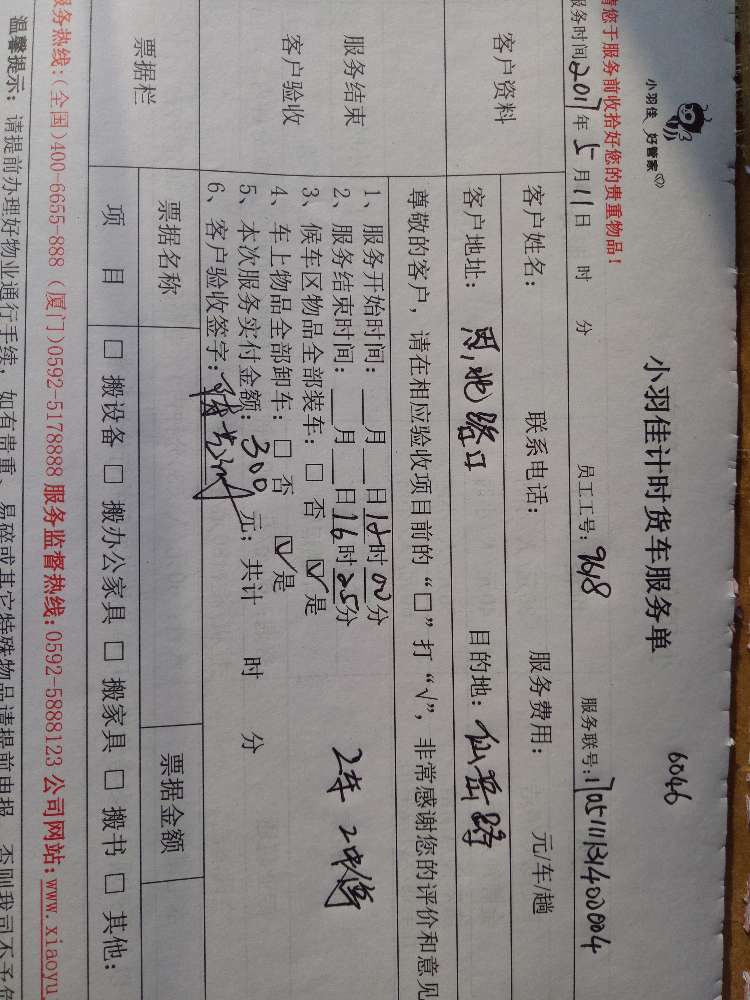 小羽佳 好管家
小羽佳计时货车服务单
6046
请您于服务前收拾好您的贵重物品！
服务时间2017年5月11日 时 分 员工工号：948 服务联号：
客户资料
客户姓名： 联系电话： 服务费用： 元/车/趟
客户地址： 路口 目的地：仙岳路
尊敬的客户，请在相应验收项目前的“□”打“√”，非常感谢您的评价和意见
服务结束
客户验收
1、服务开始时间：__月__日 时00分
2、服务结束时间：__月__日16时25分
3、候车区物品全部装车：□ 否 ☑ 是
4、车上物品全部卸车：□ 否 ☑ 是
5、本次服务实付金额：300元；共计 时 分
6、客户验收签字：
2车2
票据栏
票据名称 票据金额
项 目 □ 搬设备 □ 搬办公家具 □ 搬家具 □ 搬书 □ 其他：
服务热线：(全国)400-6655-888（厦门)0592-5178888 服务监督热线：0592-5888123 公司网站：www.xiaoyu
温馨提示：请提前办理好物业通行手续，如有贵重、易碎或其它特殊物品请提前申报，否则我司不予